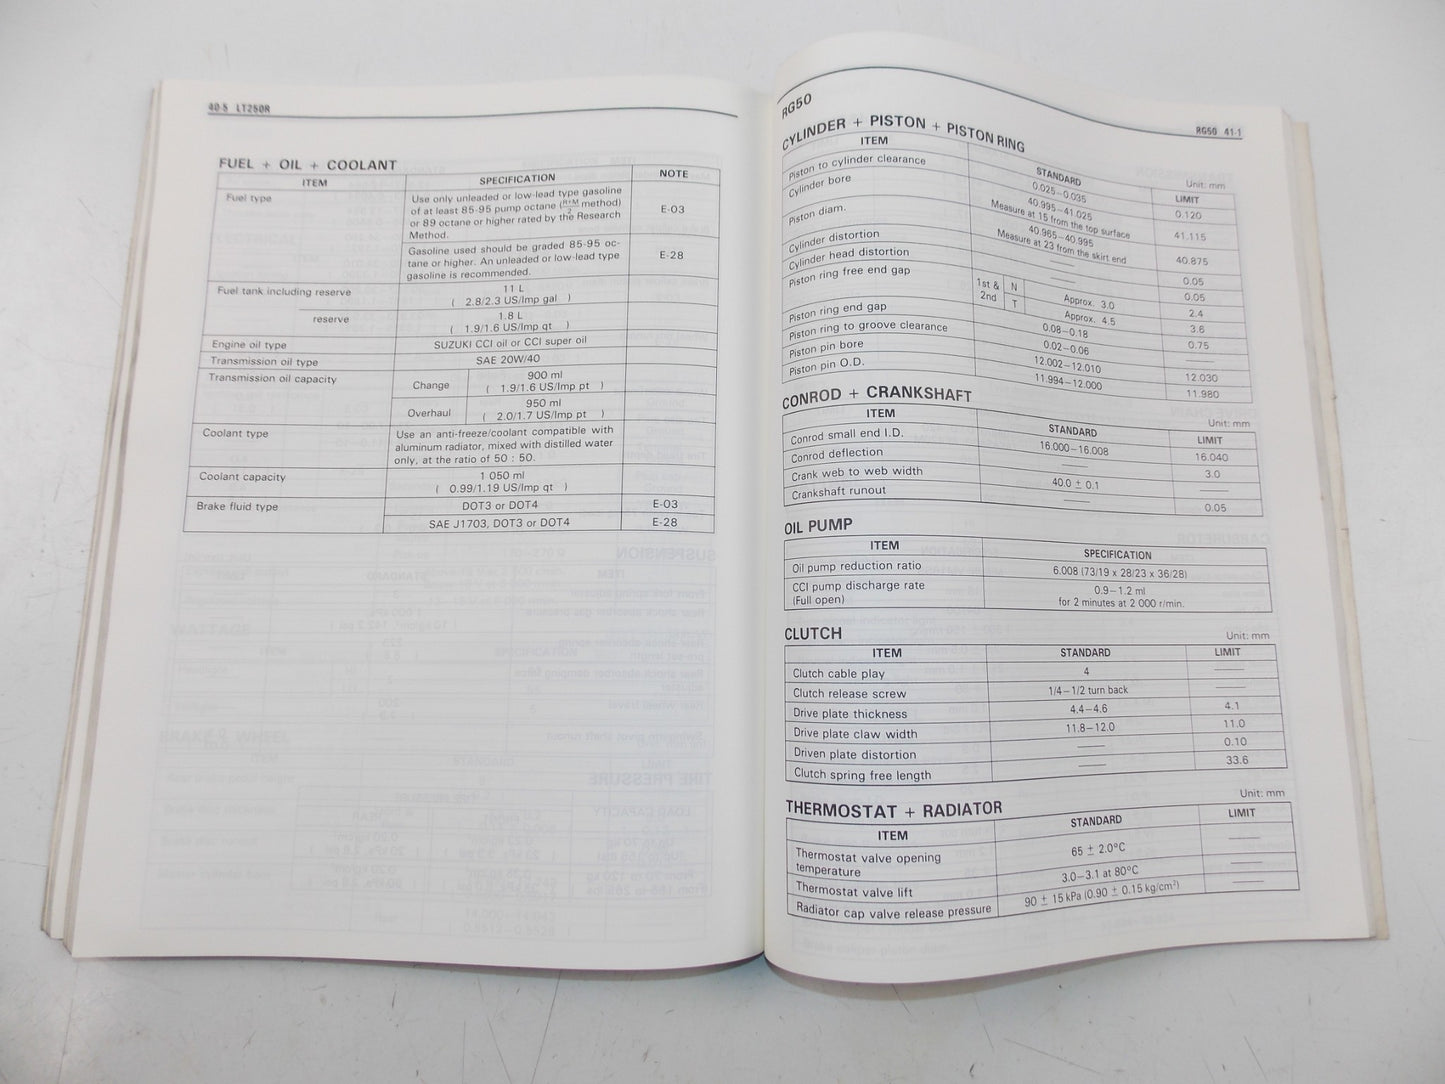 40-5 LT250R
FUEL + OIL + COOLANT
ITEM SPECIFICATION NOTE
Fuel type Use only unleaded or low-lead type gasoline
of at least 85-95 pump octane (R+M/2 method)
or 89 octane or higher rated by the Research
Method. E-03
Gasoline used should be graded 85-95 oc-
tane or higher. An unleaded or low-lead type
gasoline is recommended. E-28
Fuel tank including reserve 11 L
( 2.8/2.3 US/Imp gal )
reserve 1.8 L
( 1.9/1.6 US/Imp qt )
Engine oil type SUZUKI CCI oil or CCI super oil
Transmission oil type SAE 20W/40
Transmission oil capacity Change 900 ml
( 1.9/1.6 US/Imp pt )
Overhaul 950 ml
( 2.0/1.7 US/Imp pt )
Coolant type Use an anti-freeze/coolant compatible with
aluminum radiator, mixed with distilled water
only, at the ratio of 50 : 50.
Coolant capacity 1 050 ml
( 0.99/1.19 US/Imp qt )
Brake fluid type DOT3 or DOT4 E-03
SAE J1703, DOT3 or DOT4 E-28
RG50 41-1
RG50
CYLINDER + PISTON + PISTON RING
Unit: mm
ITEM STANDARD LIMIT
Piston to cylinder clearance 0.025–0.035 0.120
Cylinder bore 40.995–41.025
Measure at 15 from the top surface 41.115
Piston diam. 40.965–40.995
Measure at 23 from the skirt end 40.875
Cylinder distortion —— 0.05
Cylinder head distortion —— 0.05
Piston ring free end gap 1st & 2nd N Approx. 3.0 2.4
T Approx. 4.5 3.6
Piston ring end gap 0.08–0.18 0.75
Piston ring to groove clearance 0.02–0.06 ——
Piston pin bore 12.002–12.010 12.030
Piston pin O.D. 11.994–12.000 11.980
CONROD + CRANKSHAFT
Unit: mm
ITEM STANDARD LIMIT
Conrod small end I.D. 16.000–16.008 16.040
Conrod deflection —— 3.0
Crank web to web width 40.0 ± 0.1 ——
Crankshaft runout —— 0.05
OIL PUMP
ITEM SPECIFICATION
Oil pump reduction ratio 6.008 (73/19 x 28/23 x 36/28)
CCI pump discharge rate 0.9–1.2 ml
(Full open) for 2 minutes at 2 000 r/min.
CLUTCH Unit: mm
ITEM STANDARD LIMIT
Clutch cable play 4 ——
Clutch release screw 1/4–1/2 turn back ——
Drive plate thickness 4.4–4.6 4.1
Drive plate claw width 11.8–12.0 11.0
Driven plate distortion —— 0.10
Clutch spring free length —— 33.6
THERMOSTAT + RADIATOR Unit: mm
ITEM STANDARD LIMIT
Thermostat valve opening
temperature 65 ± 2.0°C ——
Thermostat valve lift 3.0–3.1 at 80°C ——
Radiator cap valve release pressure 90 ± 15 kPa (0.90 ± 0.15 kg/cm²) ——